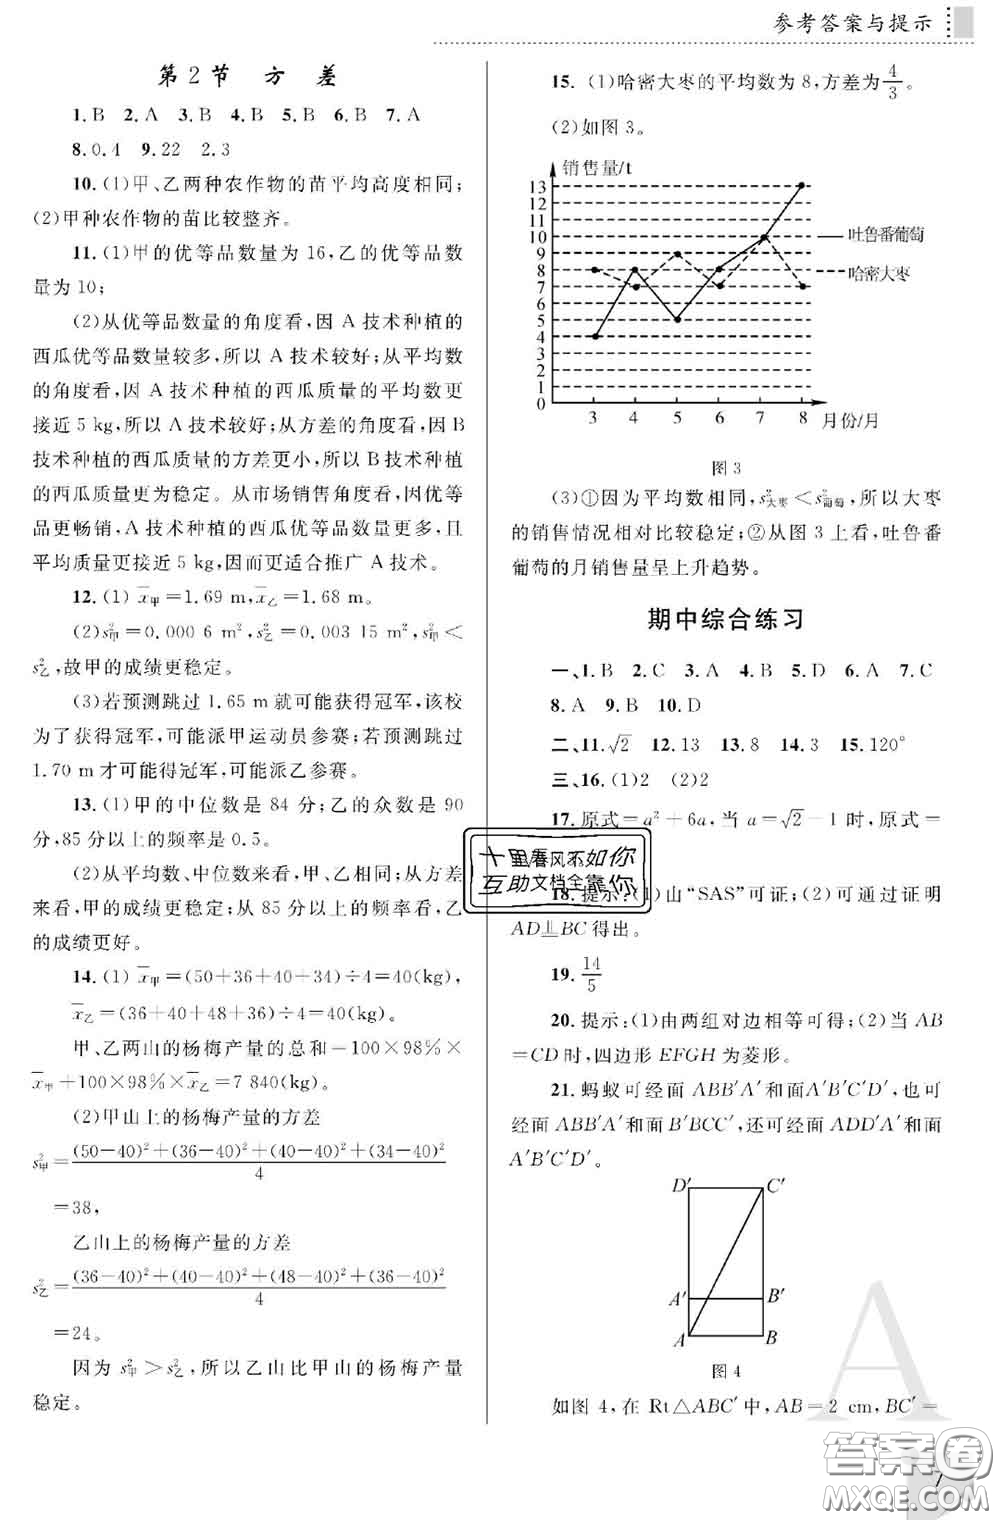 参考答案与提示
第2节 方 差
1.B 2.A 3.B 4.B 5.B 6.B 7.A
8.0.4 9.22 2.3
10.(1)甲、乙两种农作物的苗平均高度相同;
(2)甲种农作物的苗比较整齐。
11.(1)甲的优等品数量为16,乙的优等品数
量为10;
(2)从优等品数量的角度看,因A技术种植的
西瓜优等品数量较多,所以A技术较好;从平均数
的角度看,因A技术种植的西瓜质量的平均数更
接近5 kg,所以A技术较好;从方差的角度看,因B
技术种植的西瓜质量的方差更小,所以B技术种植
的西瓜质量更为稳定。从市场销售角度看,因优等
品更畅销,A技术种植的西瓜优等品数量更多,且
平均质量更接近5 kg,因而更适合推广A技术。
12.(1) x̄甲=1.69 m,x̄乙=1.68 m。
(2)s²甲=0.000 6 m²,s²乙=0.003 15 m²,s²甲<
s²乙,故甲的成绩更稳定。
(3)若预测跳过1.65 m就可能获得冠军,该校
为了获得冠军,可能派甲运动员参赛;若预测跳过
1.70 m才可能得冠军,可能派乙参赛。
13.(1)甲的中位数是84分;乙的众数是90
分,85分以上的频率是0.5。
(2)从平均数、中位数来看,甲、乙相同;从方差
来看,甲的成绩更稳定;从85分以上的频率看,乙
的成绩更好。
14.(1) x̄甲=(50+36+40+34)÷4=40(kg),
x̄乙=(36+40+48+36)÷4=40(kg)。
甲、乙两山的杨梅产量的总和=100×98%×
x̄甲+100×98%×x̄乙=7 840(kg)。
(2)甲山上的杨梅产量的方差
s²甲=((50-40)²+(36-40)²+(40-40)²+(34-40)²)/4
=38,
乙山上的杨梅产量的方差
s²乙=((36-40)²+(40-40)²+(48-40)²+(36-40)²)/4
=24。
因为s²甲>s²乙,所以乙山比甲山的杨梅产量
稳定。
15.(1)哈密大枣的平均数为8,方差为4/3。
(2)如图3。
销售量/t
13
12
11
10
9
8
7
6
5
4
3
2
1
0
吐鲁番葡萄
哈密大枣
3 4 5 6 7 8 月份/月
图3
(3)①因为平均数相同,s²大枣<s²葡萄,所以大枣
的销售情况相对比较稳定;②从图3上看,吐鲁番
葡萄的月销售量呈上升趋势。
期中综合练习
一、1.B 2.C 3.A 4.B 5.D 6.A 7.C
8.A 9.B 10.D
二、11.√2 12.13 13.8 14.3 15.120°
三、16.(1)2 (2)2
17.原式=a²+6a,当a=√2-1时,原式=
十里春风不如你
互助文档全靠你
18.提示:(1)由“SAS”可证;(2)可通过证明
AD⫫BC得出。
19.14/5
20.提示:(1)由两组对边相等可得;(2)当AB
=CD时,四边形EFGH为菱形。
21.蚂蚁可经面ABB′A′和面A′B′C′D′,也可
经面ABB′A′和面B′BCC′,还可经面ADD′A′和面
A′B′C′D′。
D′ C′
A′ B′
A B
图4
如图4,在Rt△ABC′中,AB=2 cm,BC′=
A
答案圈
MXQE.COM
7